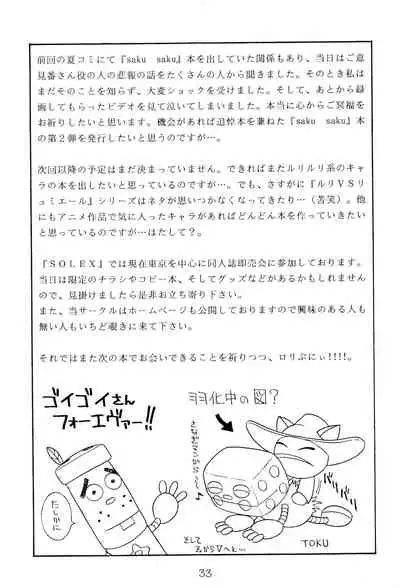 前回の夏コミにて『saku saku』本を出していた関係もあり、当日はご意
見番さん役の人の悲報の話をたくさんの人から聞きました。そのとき私は
まだそのことを知らず、大変ショックを受けました。そして、あとから録
画してもらったビデオを見て泣いてしまいました。本当に心からご冥福を
お祈りしたいと思います。機会があれば追悼本を兼ねた『saku saku』本
の第２弾を発行したいと思うのですが…。
次回以降の予定はまだ決まっていません。できればまたルリルリ系のキャ
ラの本を出したいと思っているのですが…。でも、さすがに『ルリＶＳリ
ュミエール』シリーズはネタが思いつかなくなってきたり…（苦笑）。他
にもアニメ作品で気に入ったキャラがあればどんどん本を作っていきたい
と思っているのですが…はたして。
『ＳＯＬＥＸ』では現在東京を中心に同人誌即売会に参加しております。
当日は限定のチラシやコピー本、そしてグッズなどがあるかもしれません
ので、見掛けましたら是非お立ち寄り下さい。
また、当サークルはホームページも公開しておりますので興味のある人も
無い人もいちど覗きに来て下さい。
それではまた次の本でお会いできることを祈りつつ、ロリぷにぃ!!!!。
ゴイゴイさん
フォーエヴァー!!
羽化中の図?
たしかに
そして
TOKU
33